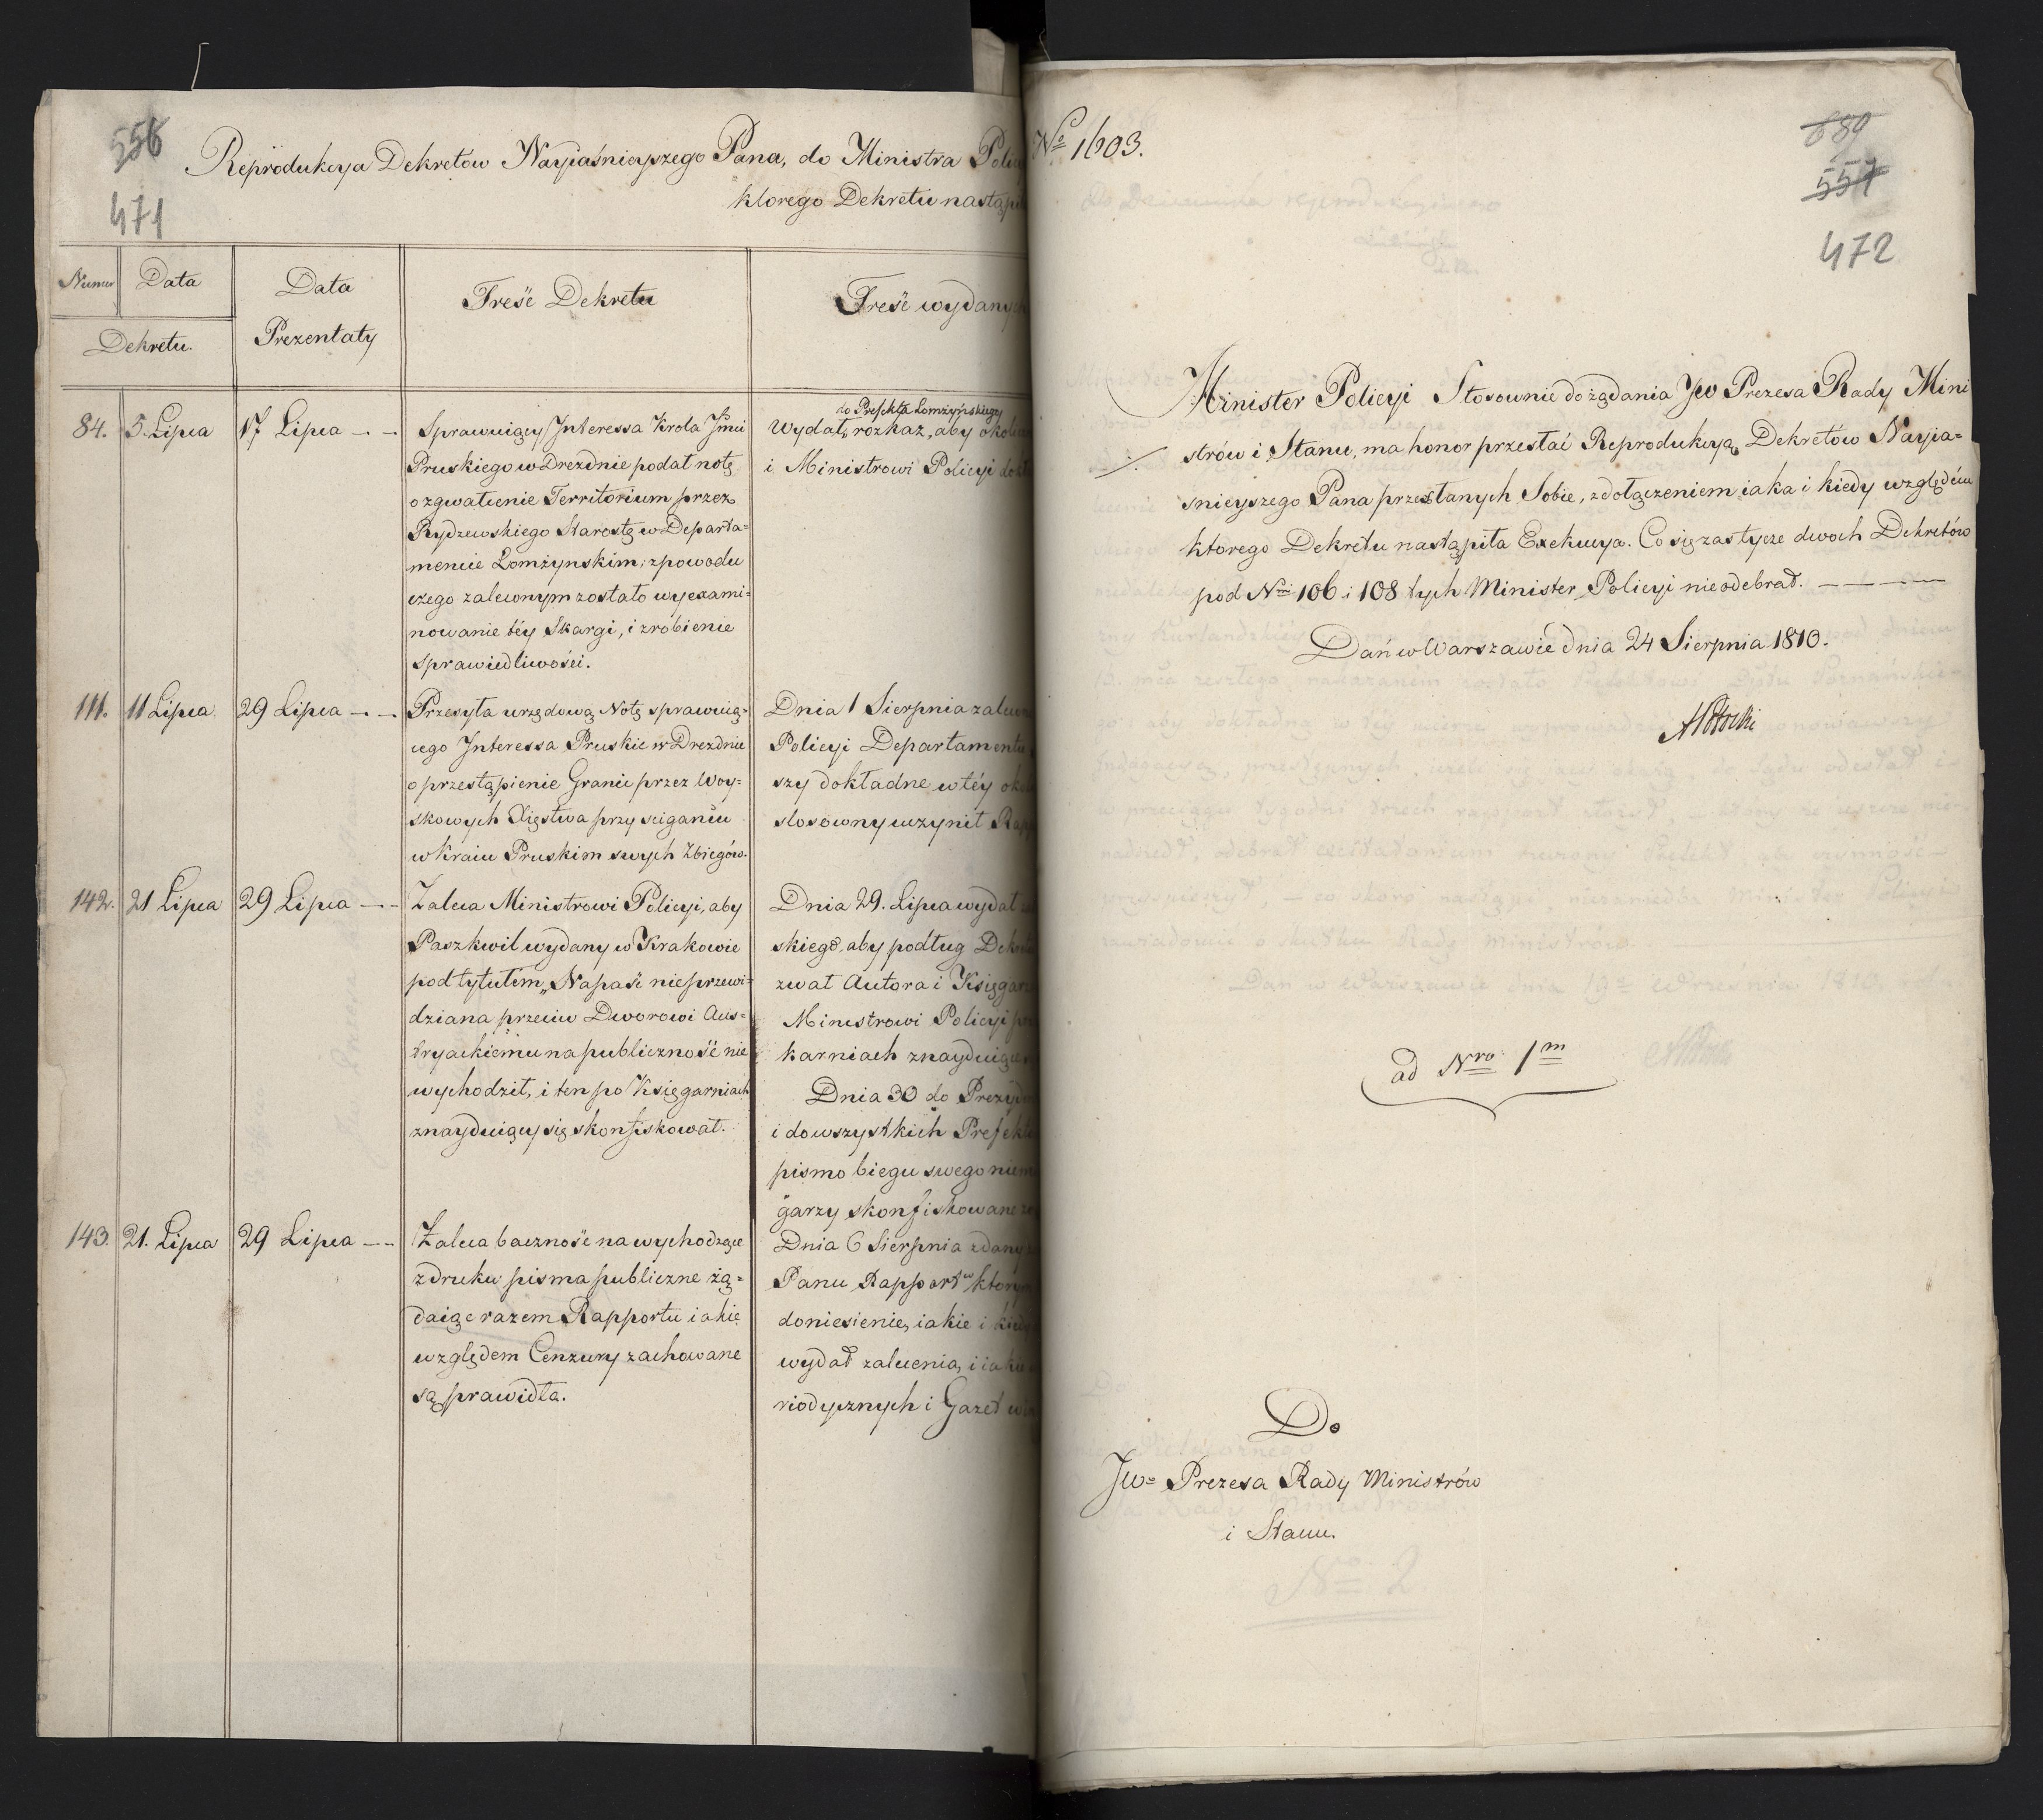 556
471
Reprodukcya Dekretów Nayiaśnieyszego Pana, do Ministra
ktorego Dekretu
Numer
Data
Dekretu.
Data
Prezentaty
Treść Dekretu
Treść wydanych
84.
5. Lipca
17 Lipca
Sprawuiący Interessa Krola Jmci
Pruskiego w Dreznie podał notę
o zgwałcenie Territorium przez
Rydzewskiego Starostę w Departa=
mencie Łomżynskim; z powodu
czego zaleconym zostało wyexami=
nowanie téy Skargi, i zrobienie
sprawiedliwości.
do Prefekta Łomżyńskiego
Wydał rozkaz, aby
i Ministrowi Policyi
111.
11 Lipca
29 Lipca
Przesyła urzędową Notę sprawuią=
cego Interessa Pruskie w Dreznie
o przestąpienie Granic przez Woy=
skowych Xięstwa przy sciganiu
w Kraiu Pruskim swych Zbiegów.
Dnia 1 Sierpnia
Policyi Departamentu
szy dokładne w téy
stosowny uczynił
142.
21 Lipca
29 Lipca
Zaleca Ministrowi Policyi, aby
Paszkwil wydany w Krakowie
pod tytułem „Napaść nieprzewi=
dziana przeciw Dworowi Aus=
tryackiemu na publiczność nie
wychodził, i ten po Xięgarniach
znayduiący się skonfiskował.
Dnia 29. Lipca wydał
skiego, aby podług
zwał Autora i
Ministrowi Policyi
karniach
Dnia 30 do
i do wszystkich
pismo biegu swego
garzy skonfiskowane
143.
21. Lipca
29 Lipca
Zaleca baczność na wychodzące
z druku pisma publiczne żą=
daiąc razem Rapportu iakie
względem Cenzury zachowane
są prawidła.
Dnia 6 Sierpnia zdany
Panu Rapport w
doniesienie, iakie i
wydał zalecenia, i
riodycznych i Gazet
No 1603.
689
557
472
Minister Policyi Stosownie do żądania JW Prezesa Rady Mini
strów i Stanu, ma honor przesłać Reprodukcyą Dekretów Nayia=
snieyszego Pana przesłanych Sobie, z dołączeniem iaka i kiedy względem
ktorego Dekretu nastąpiła Exekucya. Co się zas tycze dwoch Dekretów
pod Nri 106 i 108 tych Minister Policyi nieodebrał.
Dań w Warszawie dnia 24 Sierpnia 1810.
APotocki
ad Nro 1m
Do
JW= Prezesa Rady Ministrów
i Stanu.